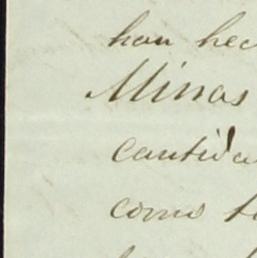 han hec
Minas
cantida
como